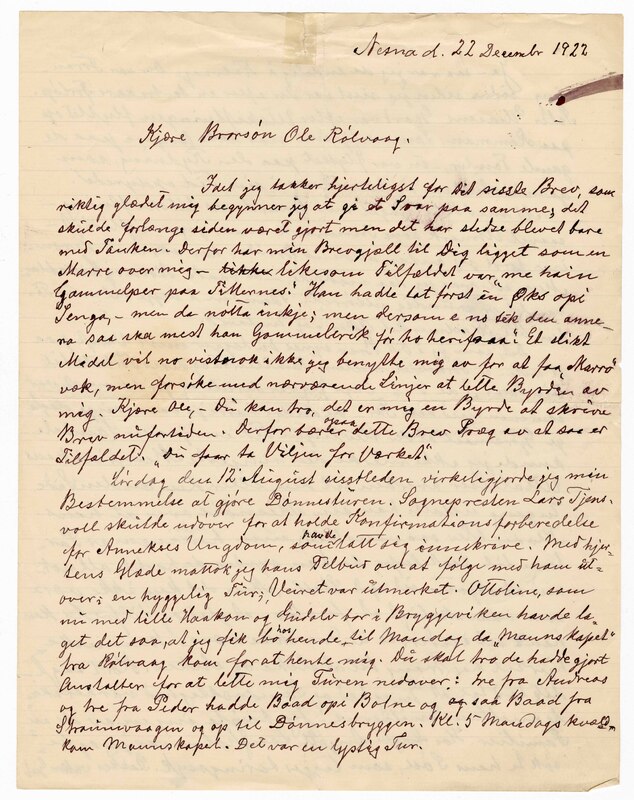 Nesna d. 22 Decembr 1922
Kjære Brorsøn Ole Rölvaag.
Idet jeg takker hjerteligst for dit sisste Brev, som
riktig glædet mig begynner jeg at gi et Svar paa samme; det
skulde forlænge siden været gjort men det har stedse blevet bare
med Tanken. Derfor har min Brevgjæll til Dig ligget som en
Marre over meg – likesom Tilfældet var "me hain
Gammelper paa Tillernes." Han hadde tat först ein Øks opi
Senga, – men da nötta inkje; men dersom e no tek den anne-
ra saa ska med han Gammelerik för ho herifraa". Et slikt
Middel vil no vistnok ikke jeg benytte mig av for at faa "Marro"
væk, men forsöke med nærværende Linjer at lette Byrden av
mig. Kjære Ole, – Du kan tro, det er mig en Byrde at skrive
Brev nufortiden. Derfor bærer ogsaa dette Brev Præg av at saa er
Tilfældet. "Du faar ta Viljen for Værket".
Lördag den 12 August sisstleden virkeliggjorde jeg min
Bestemmelse at gjöre Dönnesturen. Sognepresten Lars Tjens-
voll skulde udover for at holde Konfirmationsforberedelse
for Annekses Ungdom, som havde latt sig innskrive. Med hjer-
tens Glæde mottok jeg hans Tilbud om at fölge med ham ut-
over; en hyggelig Tur; Veiret var utmerket. Ottoline, som
nu med lille Haakon og Gudolv bor i Bryggeviken havde la-
get det saa, at jeg fik bo hos hende til Mandag da "Mannskapet"
fra Rölvaag kom for at hente mig. Du skal tro de hadde gjort
Anstalter for at lette mig Turen nedover: tre fra Andreas
og tre fra Peder hadde Baad opi Botne og saa Baad fra
Straumvaagen og op til Dönnesbryggen. Kl. 5 Mandagskvæld
kom Mannskapet. Det var en lystig Tur.